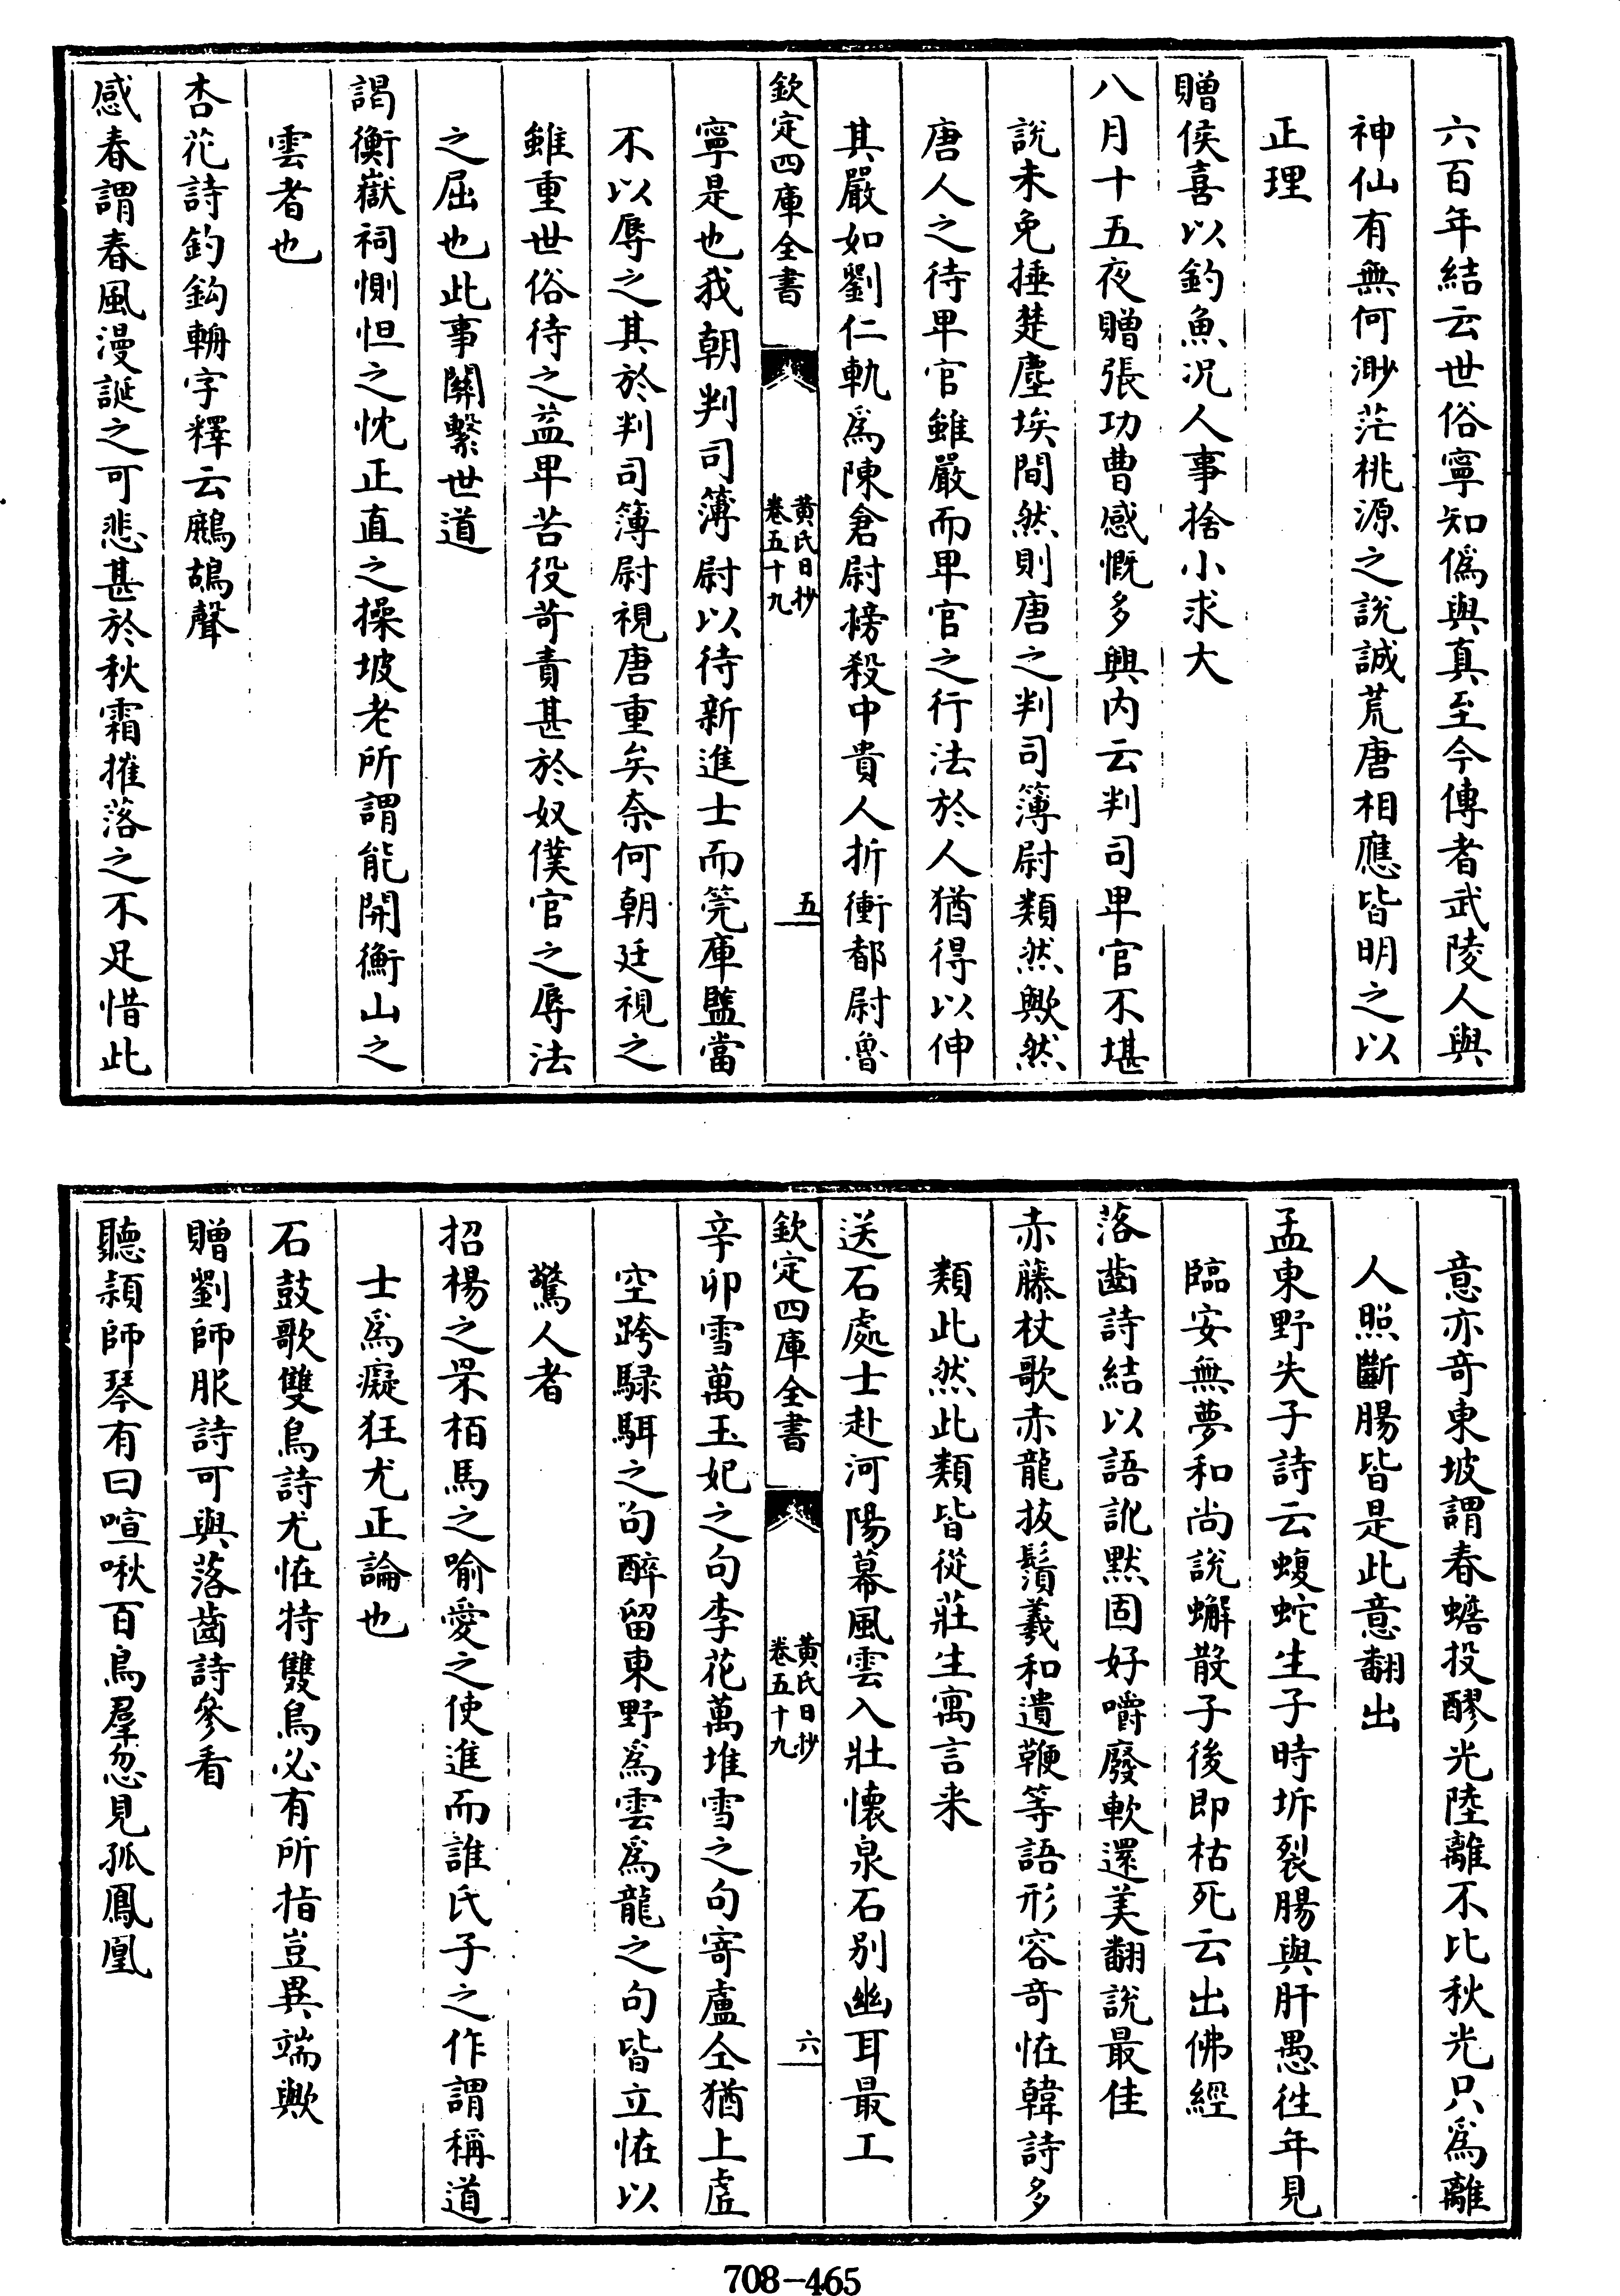 六百年結云世俗寧知僞與真至今傳者武陵人與
神仙有無何渺茫桃源之說誠荒唐相應皆明之以
正理
贈侯喜以釣魚況人事捨小求大
八月十五夜贈張功曹感慨多興内云判司卑官不堪
說未免捶楚塵埃間然則唐之判司簿尉類然歟然
唐人之待卑官雖嚴而卑官之行法於人猶得以伸
其嚴如劉仁軌爲陳倉尉搒殺中貴人折衝都尉魯
欽定四庫全書
黄氏日抄
卷五十九
五
寧是也我朝判司簿尉以待新進士而筦庫監當
不以辱之其於判司簿尉視唐重矣奈何朝廷視之
雖重世俗待之益卑苦役苛責甚於奴僕官之辱法
之屈也此事關繫世道
謁衡嶽祠惻怛之忱正直之操坡老所謂能開衡山之
雲者也
杏花詩鈎輈字釋云鷓鴣聲
感春謂春風漫誕之可悲甚於秋霜摧落之不足惜此
意亦竒東坡謂春蟾投醪光陸離不比秋光只爲離
人照斷腸皆是此意翻出
孟東野失子詩云蝮蛇生子時坼裂腸與肝愚徃年見
臨安無夢和尚說蠏散子後即枯死云出佛經
落齒詩結以語訛默固好嚼廢軟還美翻說最佳
赤藤杖歌赤龍拔鬚羲和遺鞭等語形容竒恠韓詩多
類此然此類皆從莊生寓言来
送石處士赴河陽幕風雲入壯懷泉石别幽耳最工
欽定四庫全書
黄氏日抄
卷五十九
六
辛卯雪萬玉妃之句李花萬堆雪之句寄盧仝猶上虚
空跨騄駬之句醉留東野爲雲爲龍之句皆立恠以
驚人者
招楊之罘栢馬之喻愛之使進而誰氏子之作謂稱道
士爲癡狂尤正論也
石鼓歌雙鳥詩尤恠特雙鳥必有所指豈異端歟
贈劉師服詩可與落齒詩參看
聽潁師琴有曰喧啾百鳥羣忽見孤鳳凰
708-465